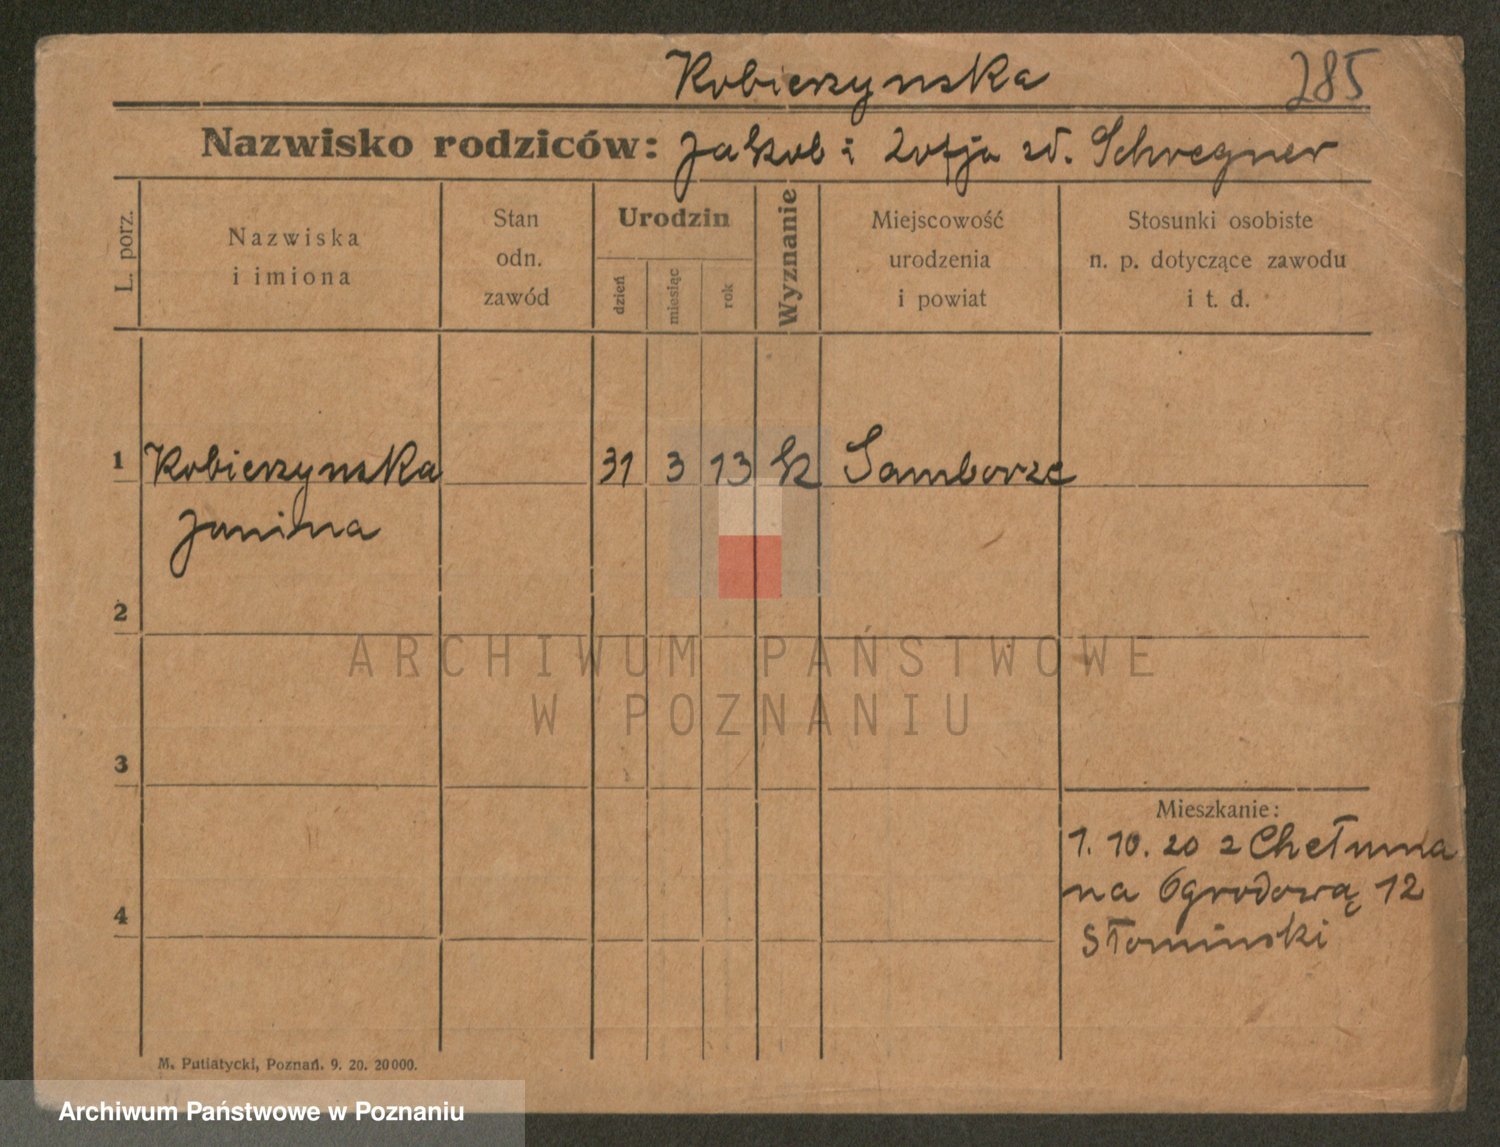 Kobierzynska 285
Nazwisko rodziców: Jakob i Zofja zd. Schregner
L. porz.
Nazwiska
i imiona
Stan
odn.
zawód
Urodzin
dzień
miesiąc
rok
Wyznanie
Miejscowość
urodzenia
i powiat
Stosunki osobiste
n. p. dotyczące zawodu
i t. d.
1 Kobierzynska 31 3 13 k Samborze
Janina
2
3
Mieszkanie:
1. 10. 20 z Chełmna
na Ogrodową 12
4
Słominski
M. Putiatycki, Poznań. 9. 20. 20000.
ARCHIWUM PAŃSTWOWE
W POZNANIU
Archiwum Państwowe w Poznaniu